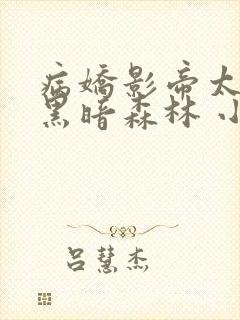 病嬌影帝太
黑暗森林 小
吕慧杰